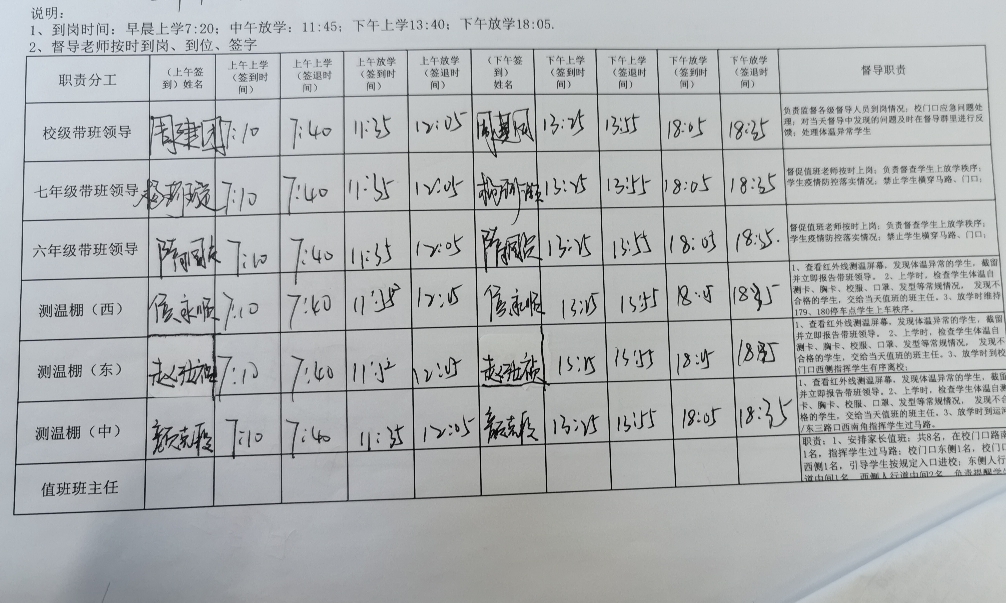 说明:
1、到岗时间：早晨上学7:20；中午放学：11:45；下午上学13:40；下午放学18:05.
2、督导老师按时到岗、到位、签字
职责分工 （上午签到）姓名 上午上学（签到时间） 上午上学（签退时间） 上午放学（签到时间） 上午放学（签退时间） （下午签到）姓名 下午上学（签到时间） 下午上学（签退时间） 下午放学（签到时间） 下午放学（签退时间） 督导职责
校级带班领导 7:10 7:40 11:35 12:05 13:25 13:55 18:05 18:35
负责监督各级督导人员到岗情况；校门口应急问题处
理；对当天督导中发现的问题及时在督导群里进行反
馈；处理体温异常学生
七年级带班领导 7:10 7:40 11:35 12:05 13:25 13:55 18:05 18:35
督促值班老师按时上岗；负责督查学生上放学秩序；
学生疫情防控落实情况；禁止学生横穿马路、门口；
六年级带班领导 7:10 7:40 11:35 12:05 13:25 13:55 18:05 18:35.
督促值班老师按时上岗；负责督查学生上放学秩序；
学生疫情防控落实情况；禁止学生横穿马路、门口；
测温棚（西） 侯永顺 7:10 7:40 12:05 侯永顺 13:25 13:55 18:05 18:35
1、查看红外线测温屏幕，发现体温异常的学生，截留
并立即报告带班领导。 2、上学时，检查学生体温自
测卡、胸卡、校服、口罩、发型等常规情况， 发现不
合格的学生，交给当天值班的班主任。3、放学时维持
179、180停车点学生上车秩序。
测温棚（东） 7:10 7:40 12:05 13:25 13:55 18:05 18:35
1、查看红外线测温屏幕，发现体温异常的学生，截留
并立即报告带班领导。 2、上学时，检查学生体温自
测卡、胸卡、校服、口罩、发型等常规情况， 发现不
合格的学生，交给当天值班的班主任。3、放学时到校
门口西侧指挥学生有序离校；
测温棚（中） 7:10 7:40 11:35 12:05 13:25 13:55 18:05 18:35
1、查看红外线测温屏幕，发现体温异常的学生，截留
并立即报告带班领导。2、上学时，检查学生体温自测
卡、胸卡、校服、口罩、发型等常规情况， 发现不合
格的学生，交给当天值班的班主任。3、放学时到运河
/东三路口西南角指挥学生过马路。
值班班主任
职责：1、安排家长值班：共8名，在校门口路南
1名，指挥学生过马路；校门口东侧1名，校门口
西侧1名，引导学生按规定入口进校；东侧人行
道中间1名，西侧人行道中间2名，负责提醒学生